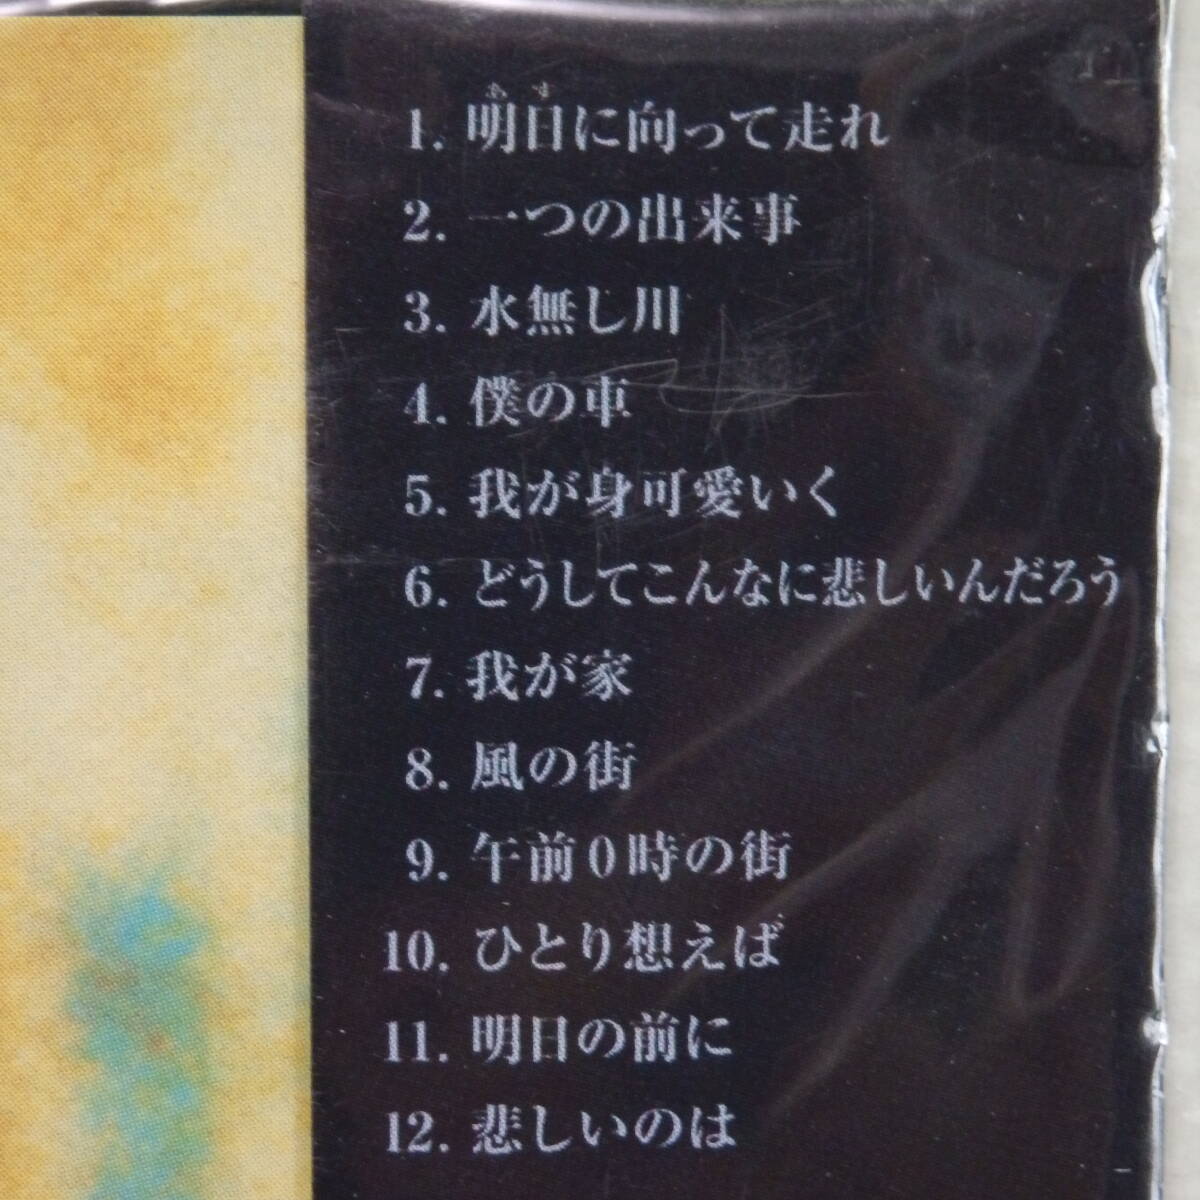 1. 明日に向って走れ
あす
2. 一つの出来事
3. 水無し川
4. 僕の車
5. 我が身可愛いく
6. どうしてこんなに悲しいんだろう
7. 我が家
8. 風の街
9. 午前0時の街
10. ひとり想えば
11. 明日の前に
12. 悲しいのは